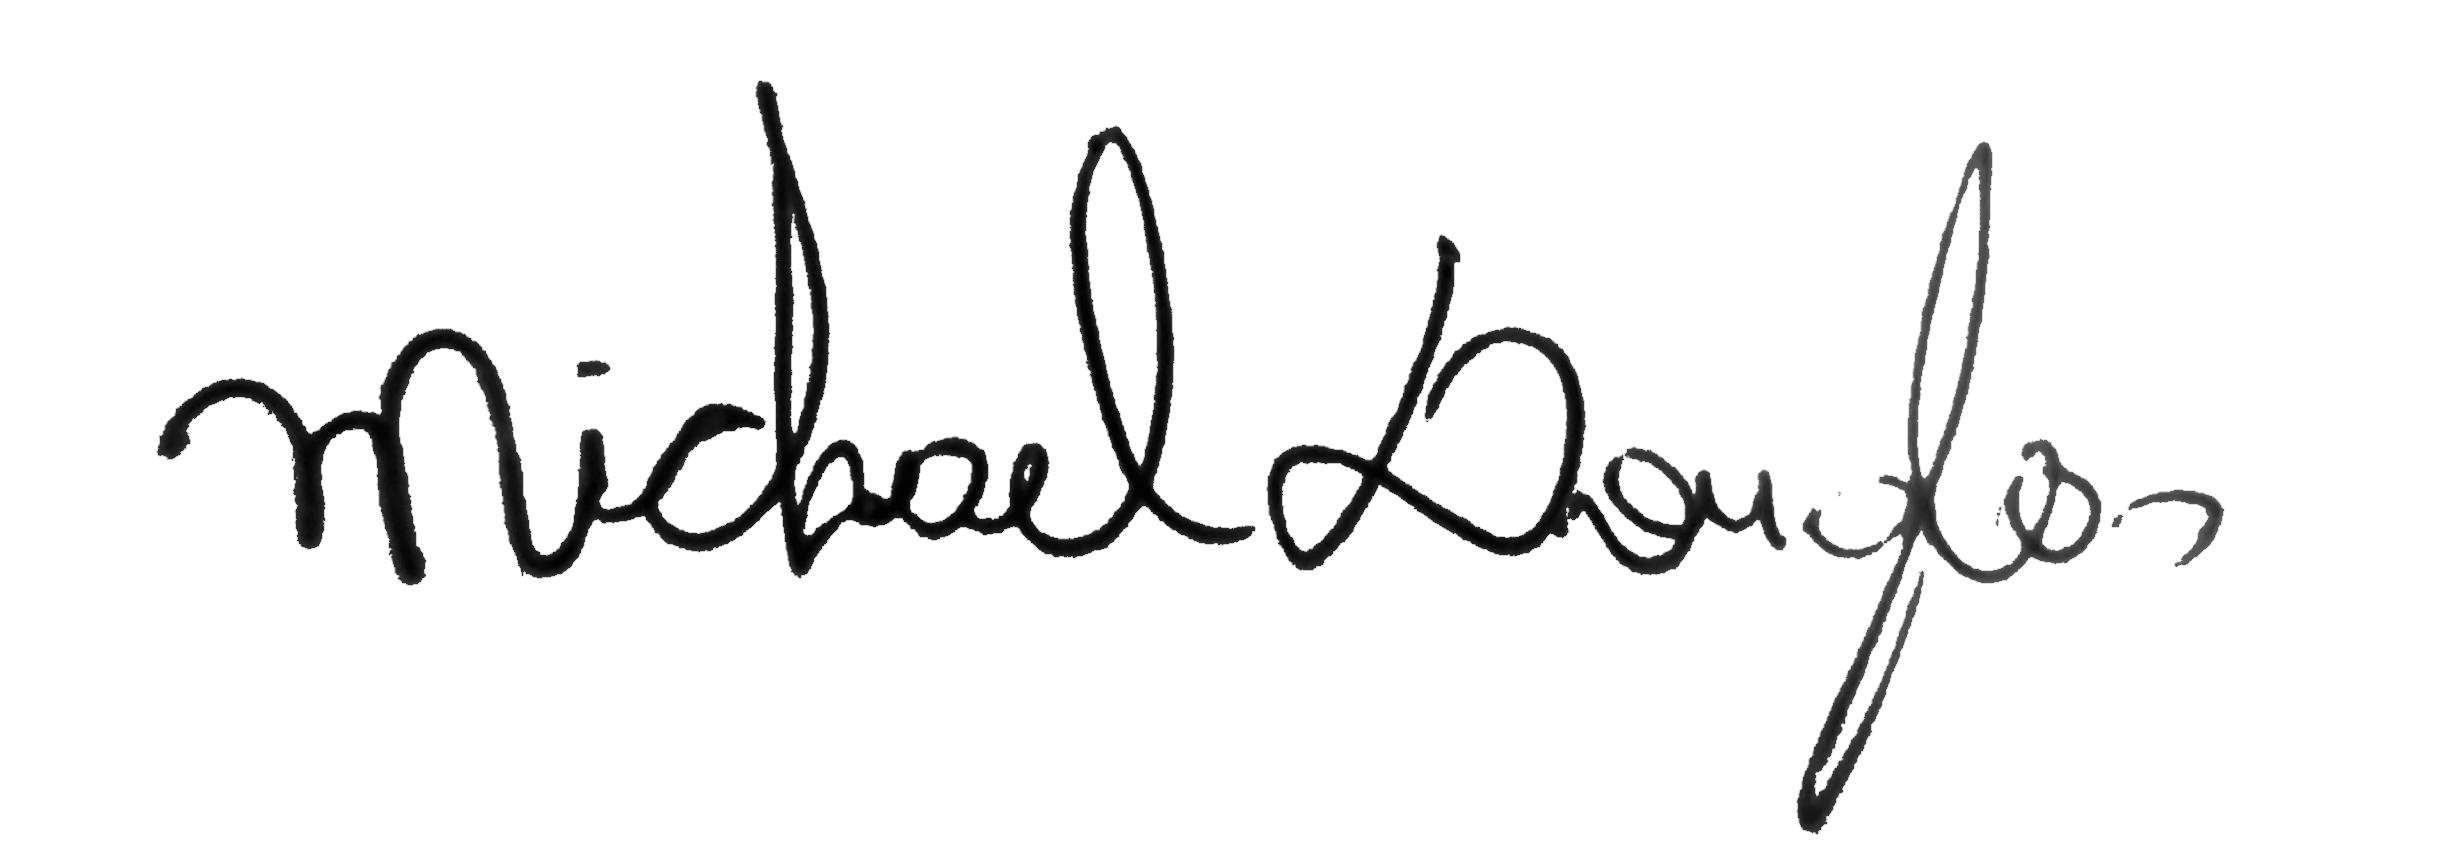 Michael Douglas